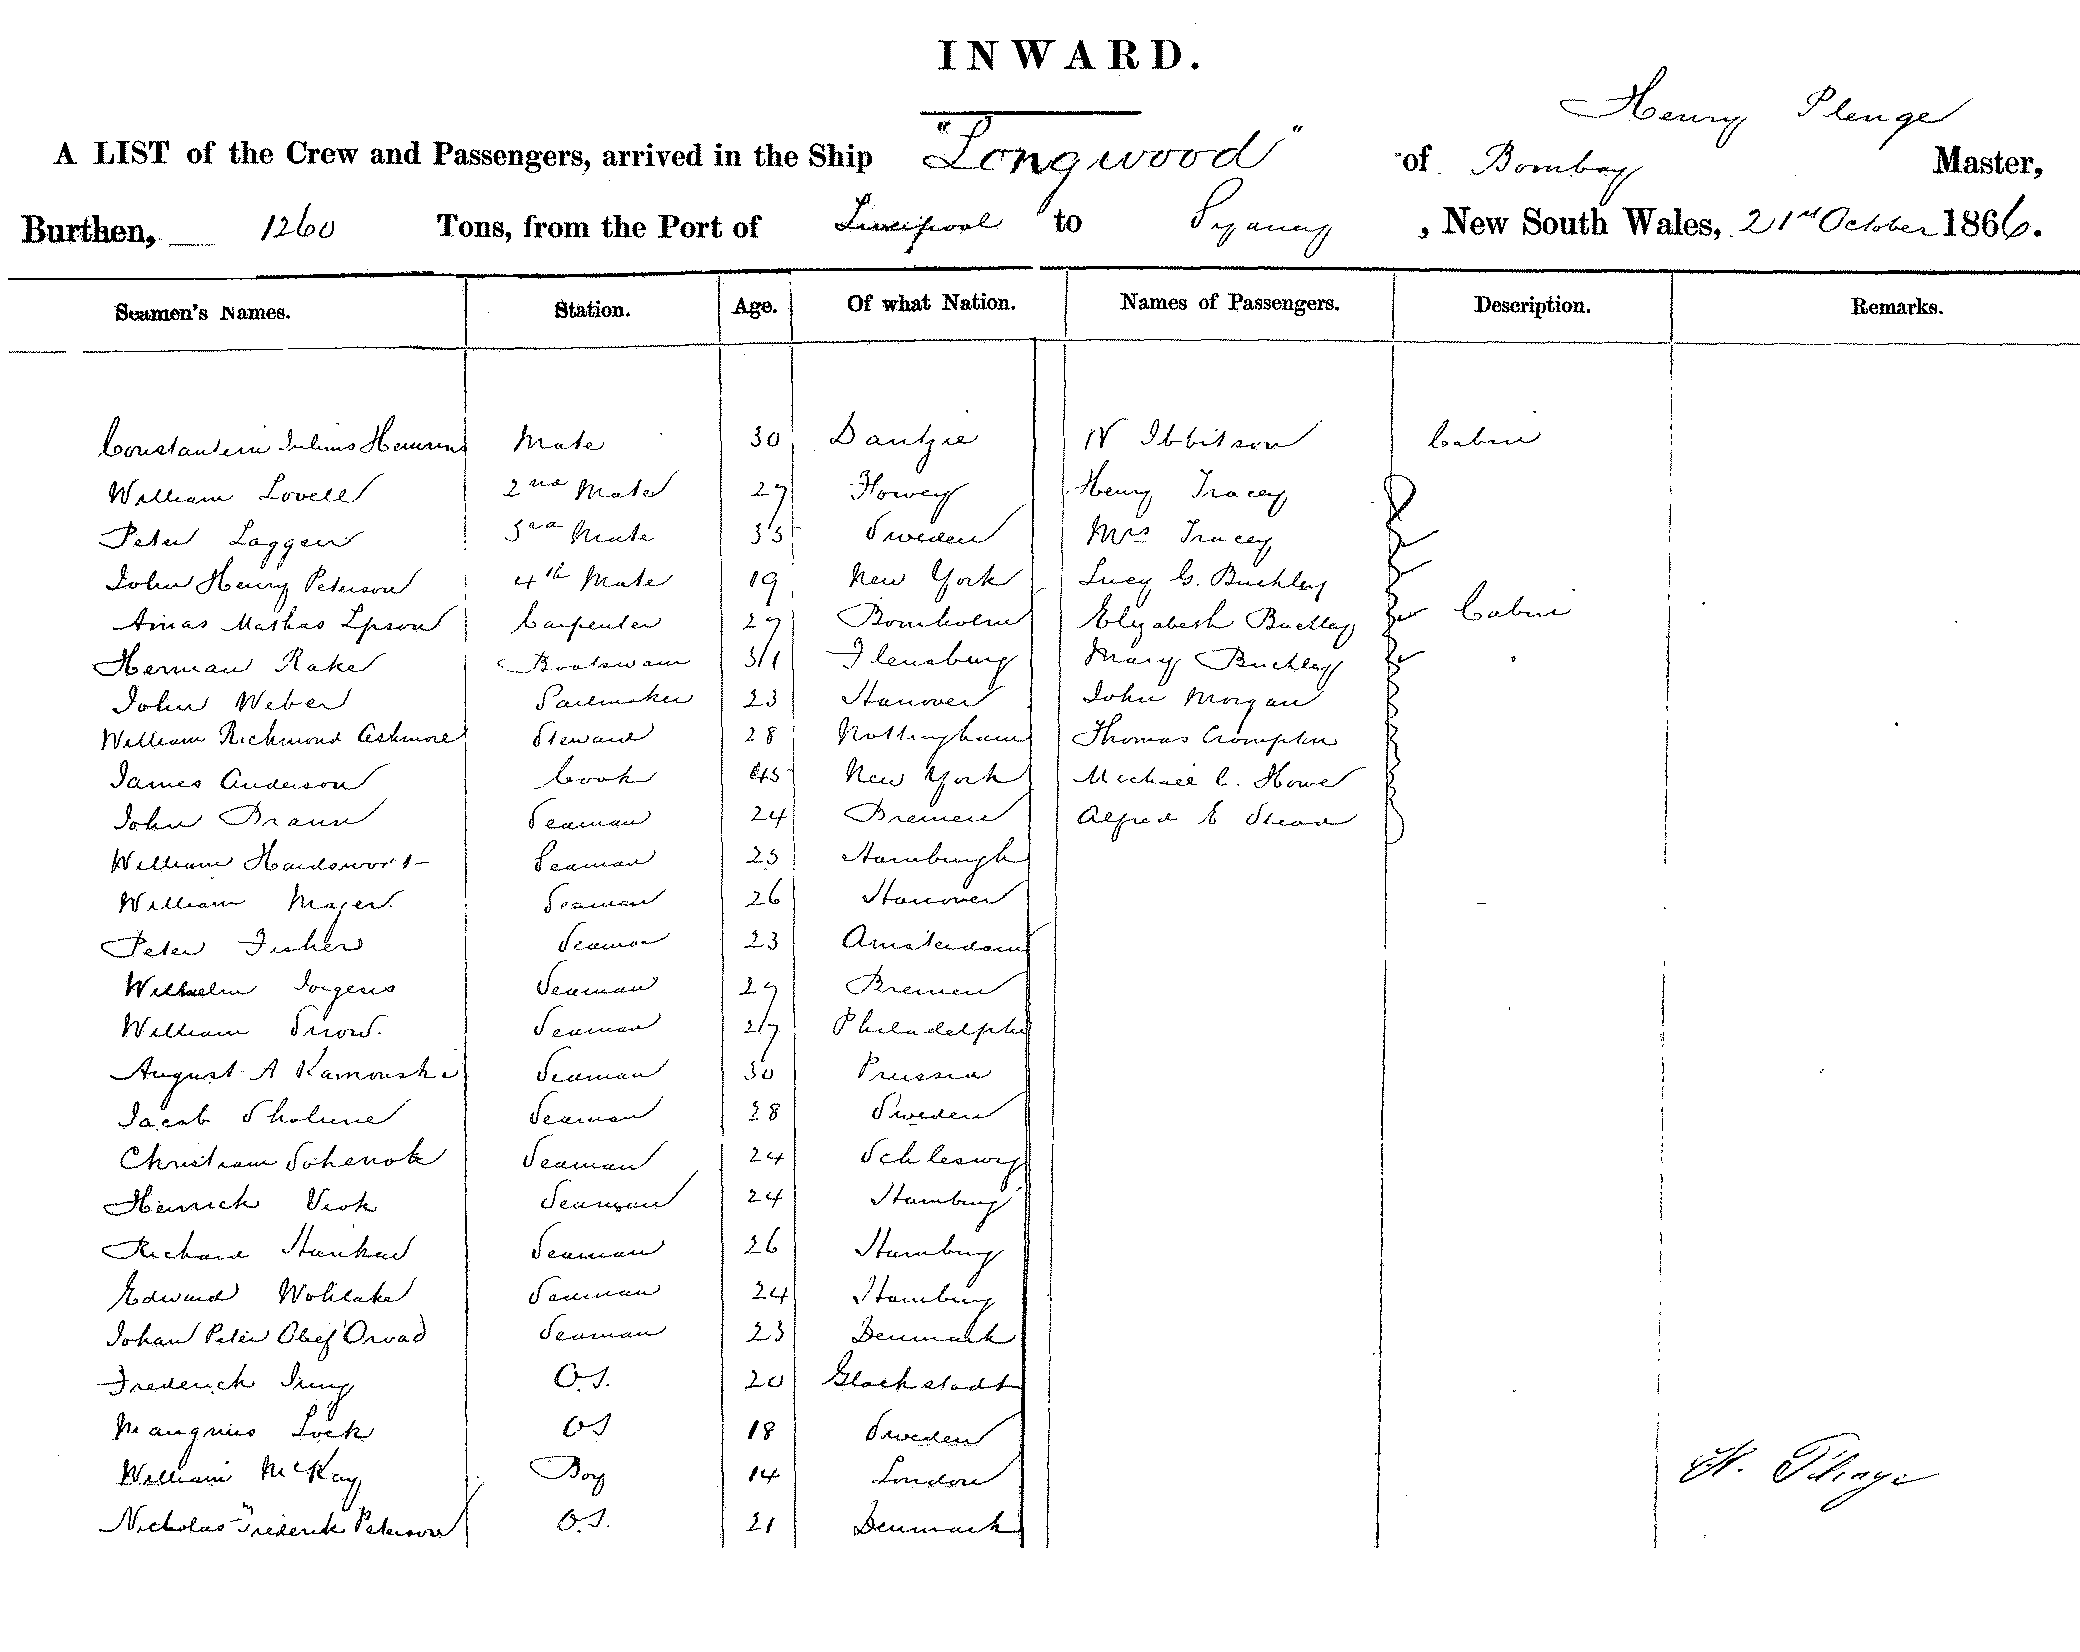 INWARD.
Henry Plenge
A LIST of the Crew and Passengers, arrived in the Ship "Longwood" of Bombay Master,
Burthen, 1260 Tons, from the Port of Liverpool to Sydney, New South Wales, 21st October 1866.
Seamen's Names. Station. Age. Of what Nation. Names of Passengers. Description. Remarks.
Julius Mate 30 Dantzic Ibbitson Cabin
William Lovell 2nd Mate 27 Fowey Henry Tracey
Peter Laggen 3rd Mate 35 Sweden Mrs Tracey
John Henry Peterson 4th Mate 19 New York Lucy G. Buckley
Mathas Ipson Carpenter 27 Bornholm Elizabeth Buckley Cabin
Herman Rake Boatswain 31 Flensburg Mary Buckley
John Weber Sailmaker 23 Hanover John Morgan
William Richmond Ashmore Steward 28 Nottingham Thomas Crompton
James Anderson Cook 45 New York Michael C. Howe
John Braun Seaman 24 Bremen Alfred E Stead
William Seaman 25 Hamburgh
William Majer Seaman 26 Hanover
Peter Fisher Seaman 23 Amsterdam
Wilhelm Jorgens Seaman 27 Bremen
William Snow. Seaman 27 Philadelphi
August A Kamonski Seaman 30 Prussia
Jacob Seaman 28 Sweden
Christiam Schenok Seaman 24 Schleswig
Heinrich Viok Seaman 24 Hamburg
Richard Seaman 26 Hamburg
Edward Wohlake Seaman 24 Hamburg
Johan Peter Olef Orvad Seaman 23 Denmark
Frederick O.S. 20 Glackstadt
Mangnus Lock OS 18 Sweden
William McKay Boy 14 London
H. Plenge
Nicholas Frederik Peterson O.S. 21 Denmark